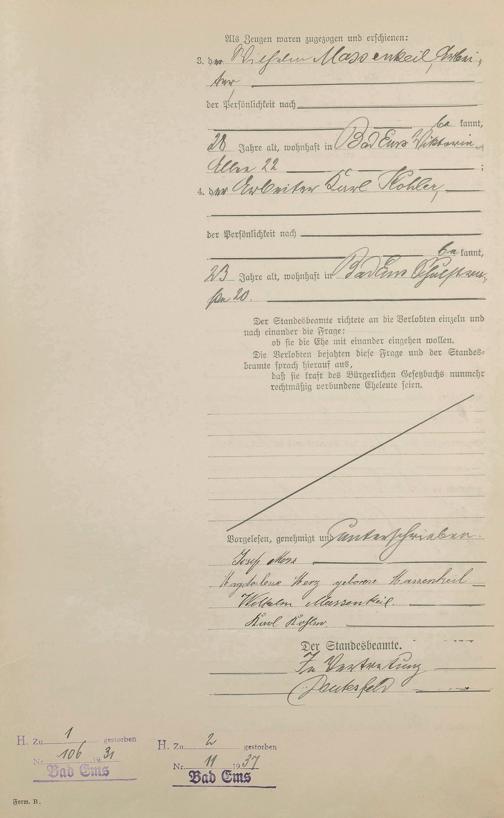 Als Zeugen waren zugezogen und erschienen:
3. der Wilhelm Massenkeil, Arbei-
ter,
der Persönlichkeit nach
be kannt,
28 Jahre alt, wohnhaft in Bad Ems Viktoria-
Allee 22 ;
4. der Arbeiter Karl Kohler,
der Persönlichkeit nach
be kannt,
23 Jahre alt, wohnhaft in Bad Ems Schulstra-
ße 20.
Der Standesbeamte richtete an die Verlobten einzeln und
nach einander die Frage:
ob sie die Ehe mit einander eingehen wollen.
Die Verlobten bejahten diese Frage und der Standes-
beamte sprach hierauf aus,
daß sie kraft des Bürgerlichen Gesetzbuchs nunmehr
rechtmäßig verbundene Eheleute seien.
Vorgelesen, genehmigt und unterschrieben.
Josef
Magdalena geborene Massenkeil
Wilhelm Massenkeil.
Karl Kohler
Der Standesbeamte.
In Vertretung
H. Zu 1 gestorben
Nr. 106 1931
Bad Ems
H. Zu 2 gestorben
Nr. 11 1937
Bad Ems
Form. B.